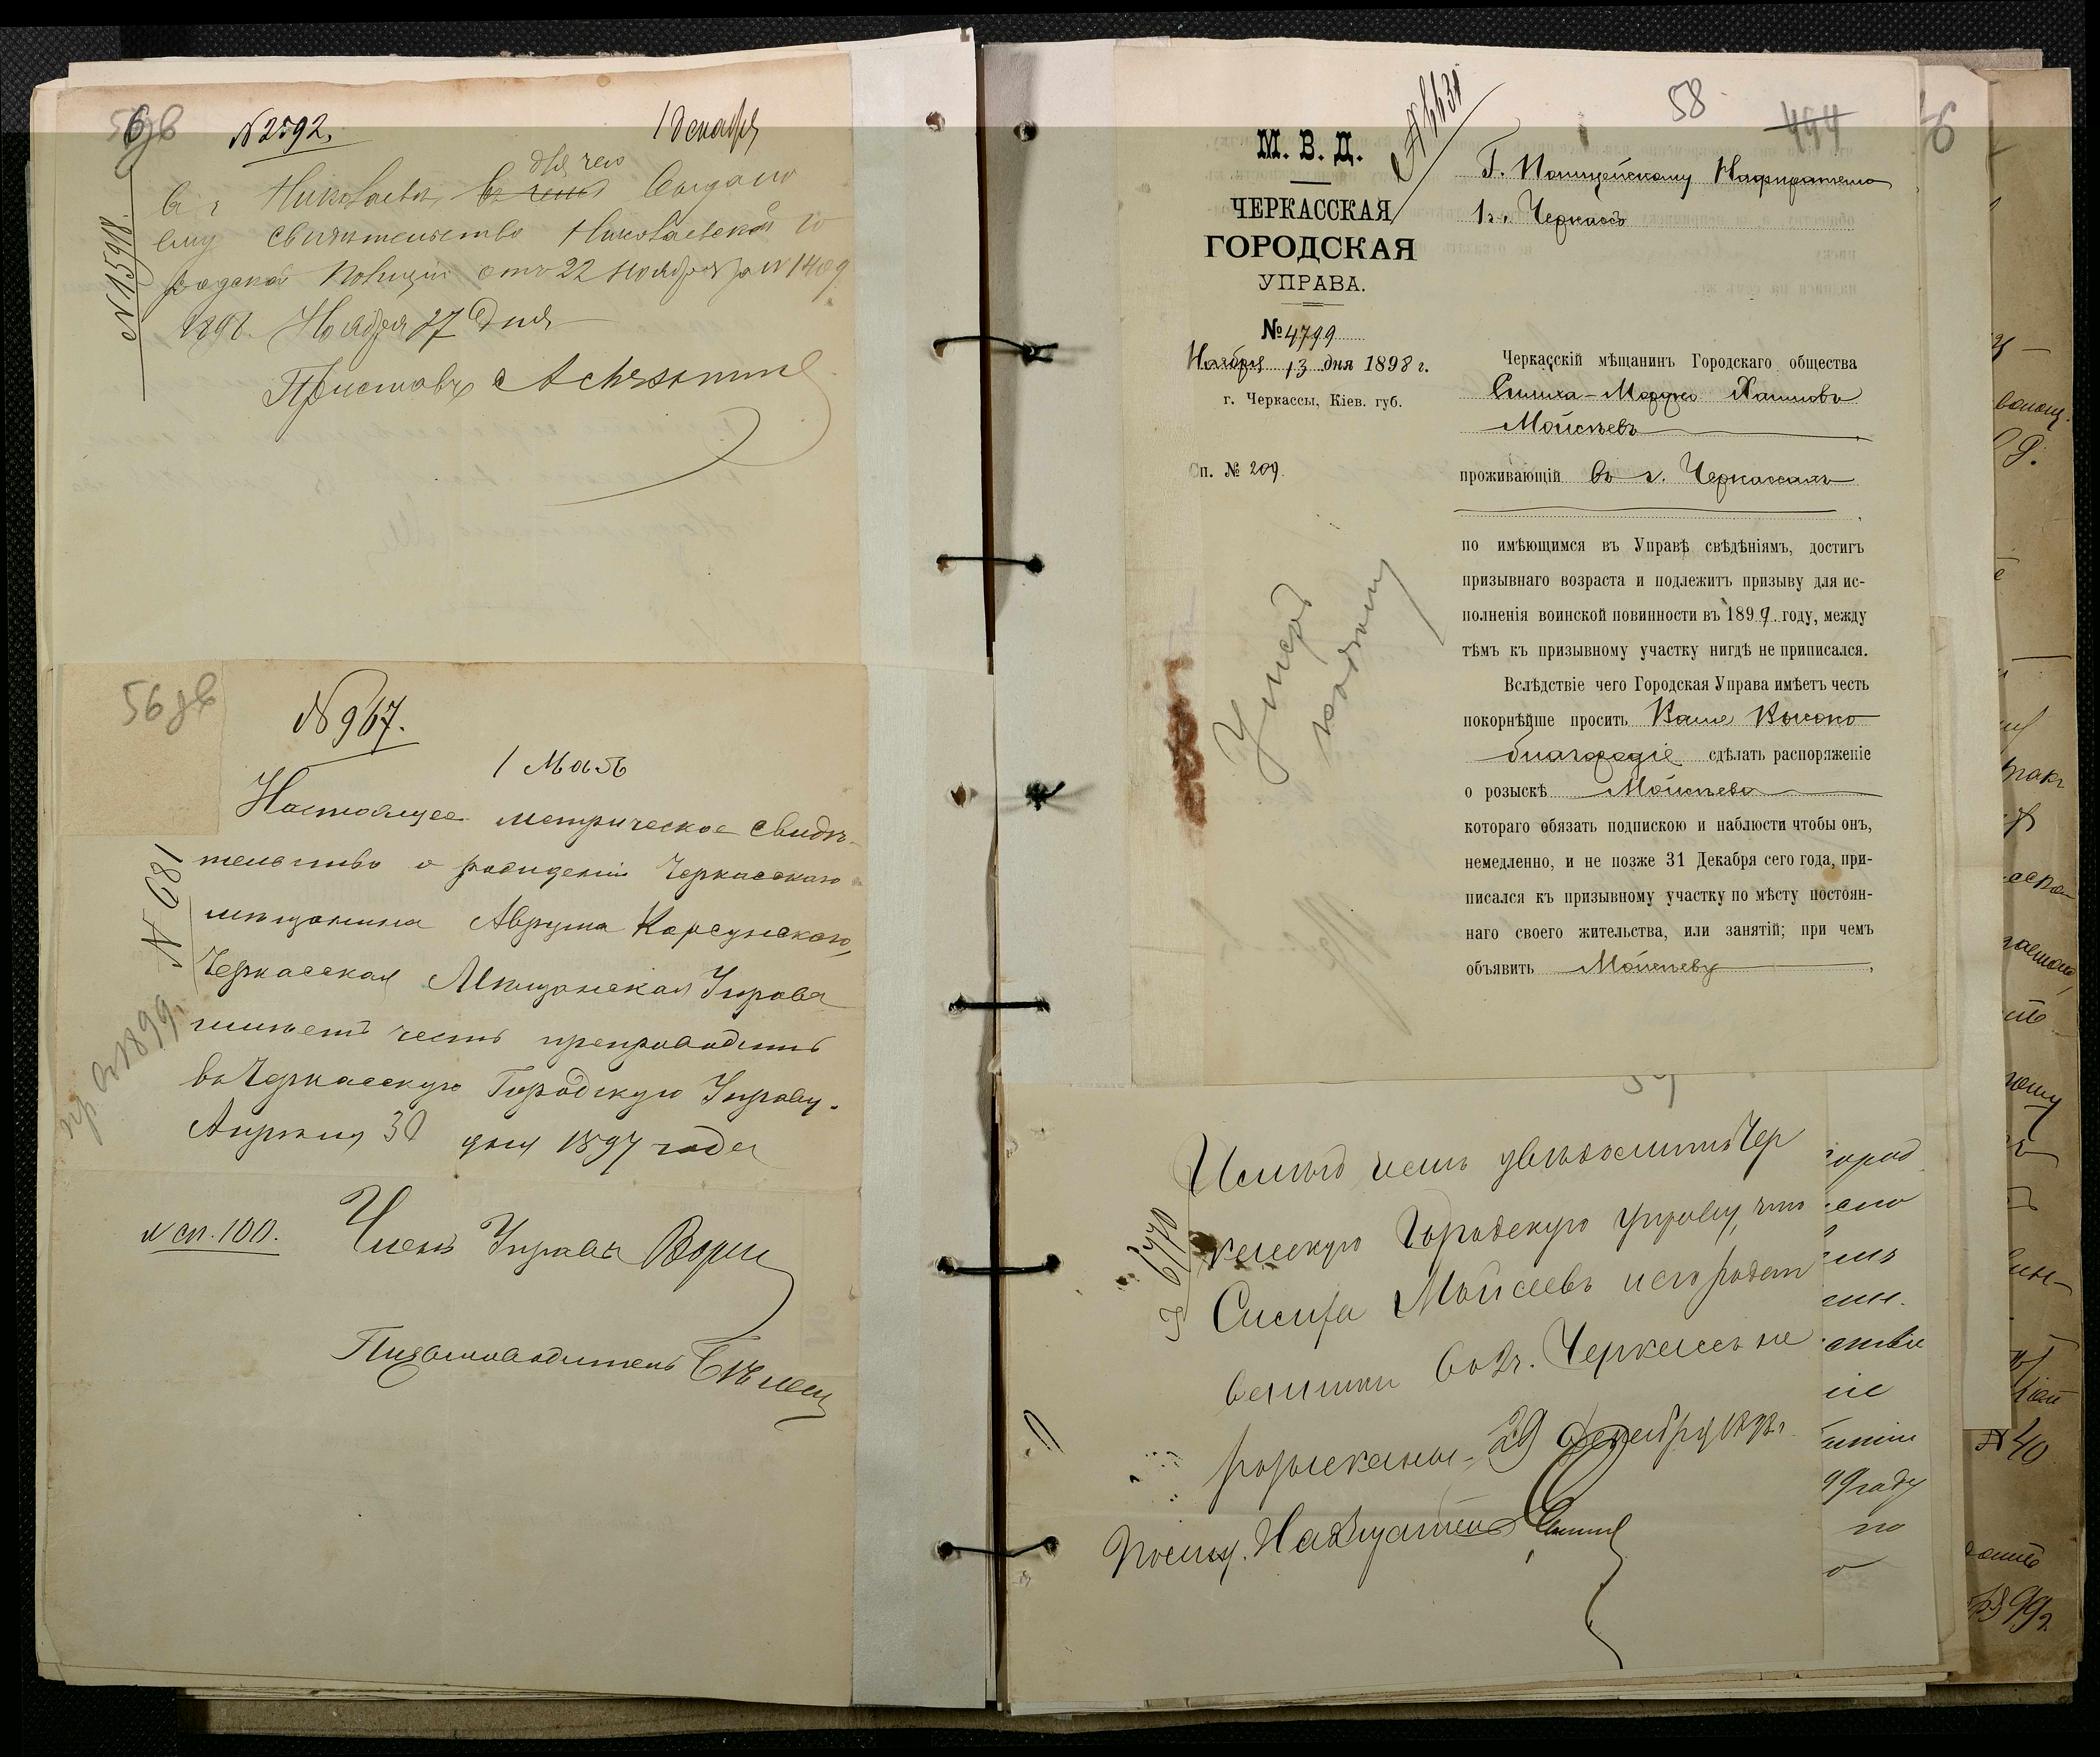 56 зв
№ 2592.
1 декабря
№ 15918.
для чего
въ г. Николаевъ, въ чемъ выдано
ему свидѣтельство Николаевской го
родской Полиціи отъ 22 Ноября за № 1409
1898. Ноября 27 дня
Приставъ
56 зв
№ 967.
1 Мая
Настоящее метрическое свидѣ-
тельство о рожденіи Черкасскаго
мѣщанина Аврума Корсунскаго,
Черкасская Мѣщанская Управа
имѣетъ честь препроводить
въ Черкасскую Городскую Управу.
Апрѣля 30 дня 1897 года
№ 681
пр. 1899 г.
№ сп. 100.
Членъ Управы
Письмоводитель
58
494
М. В. Д.
ЧЕРКАССКАЯ
ГОРОДСКАЯ
УПРАВА.
№ 4799
Ноября 13 дня 1898 г.
г. Черкассы, Кіев. губ.
Сп. № 209.
Г. Полицейскому Надзирателю
1 ч. Черкассъ
Черкасскій мѣщанинъ Городскаго общества
Симха-Мордко Хаимовъ
Мойсѣевъ
проживающій въ г. Черкассахъ
по имѣющимся въ Управѣ свѣдѣніямъ, достигъ
призывнаго возраста и подлежитъ призыву для ис-
полненія воинской повинности въ 1899 году, между
тѣмъ къ призывному участку нигдѣ не приписался.
Вслѣдствіе чего Городская Управа имѣетъ честь
покорнѣйше просить Ваше Высоко
благородіе сдѣлать распоряженіе
о розыскѣ Мойсѣева
котораго обязать подпискою и наблюсти чтобы онъ,
немедленно, и не позже 31 Декабря сего года, при-
писался къ призывному участку по мѣсту постоян-
наго своего жительства, или занятій; при чемъ
объявить Мойсѣеву
Умеръ
№ 6770
Имѣю честь увѣдомить Чер
касскую Городскую Управу, что
Симха Мойсеевъ и его родст
венники во 2 ч. Черкассъ не
розысканы. 29 Декабря 1898 г.
Полиц. Надзиратель
город
№ 40
99 году
по